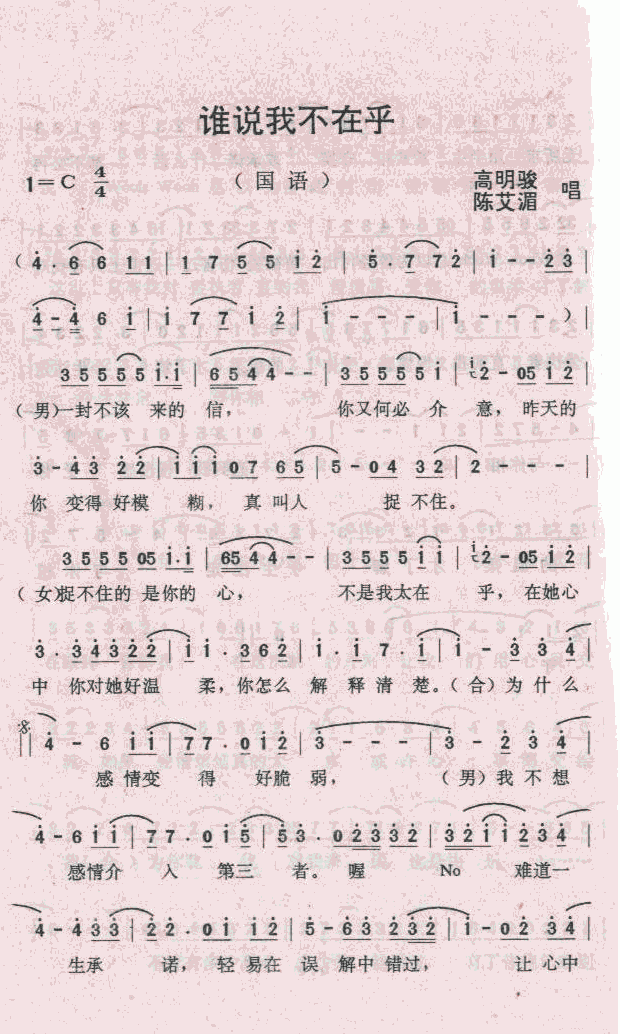 谁说我不在乎
1=C 4/4 （国语） 高明骏 陈艾湄 唱
（4·6 6 1 1 | 1 7 5 5 1 2 | 5·7 7 2 | 1 - - 2 3 |
4 - 4 6 1 | 1 7 7 1 2 | 1 - - - | 1 - - - ）|
3 5 5 5 5 1·1 | 6 5 4 4 - - | 3 5 5 5 5 5 1 | 2 - 0 5 1 2 |
（男）一封不该 来的 信， 你又何必 介 意， 昨天的
3 - 4 3 2 2 | 1 1 1 0 7 6 5 | 5 - 0 4 3 2 | 2 - - - |
你 变得 好模 糊， 真 叫人 捉 不住。
3 5 5 5 0 5 1·1 | 6 5 4 4 - - | 3 5 5 5 5 1 1 | 2 - 0 5 1 2 |
（女）捉不住的 是你的 心， 不是我太在 乎， 在她心
3·3 4 3 2 2 | 1 1·3 6 2 | 1·1 7·1 | 1 - 3 3 4 |
中 你对她好温 柔，你怎么 解 释 清 楚。（合）为 什么
4 - 6 1 1 | 7 7·0 1 2 | 3 - - - | 3 - 2 3 4 |
感 情变 得 好脆 弱， （男）我 不 想
4 - 6 1 1 | 7 7·0 1 5 | 5 3·0 2 3 3 2 | 3 2 1 1 2 3 4 |
感情介 入 第三 者。 喔 No 难道一
4 - 4 3 3 | 2 2·0 1 1 2 | 5 - 6 3 2 3 2 | 1 - 0 2 3 4 |
生承 诺， 轻 易在 误 解中 错过， 让 心中